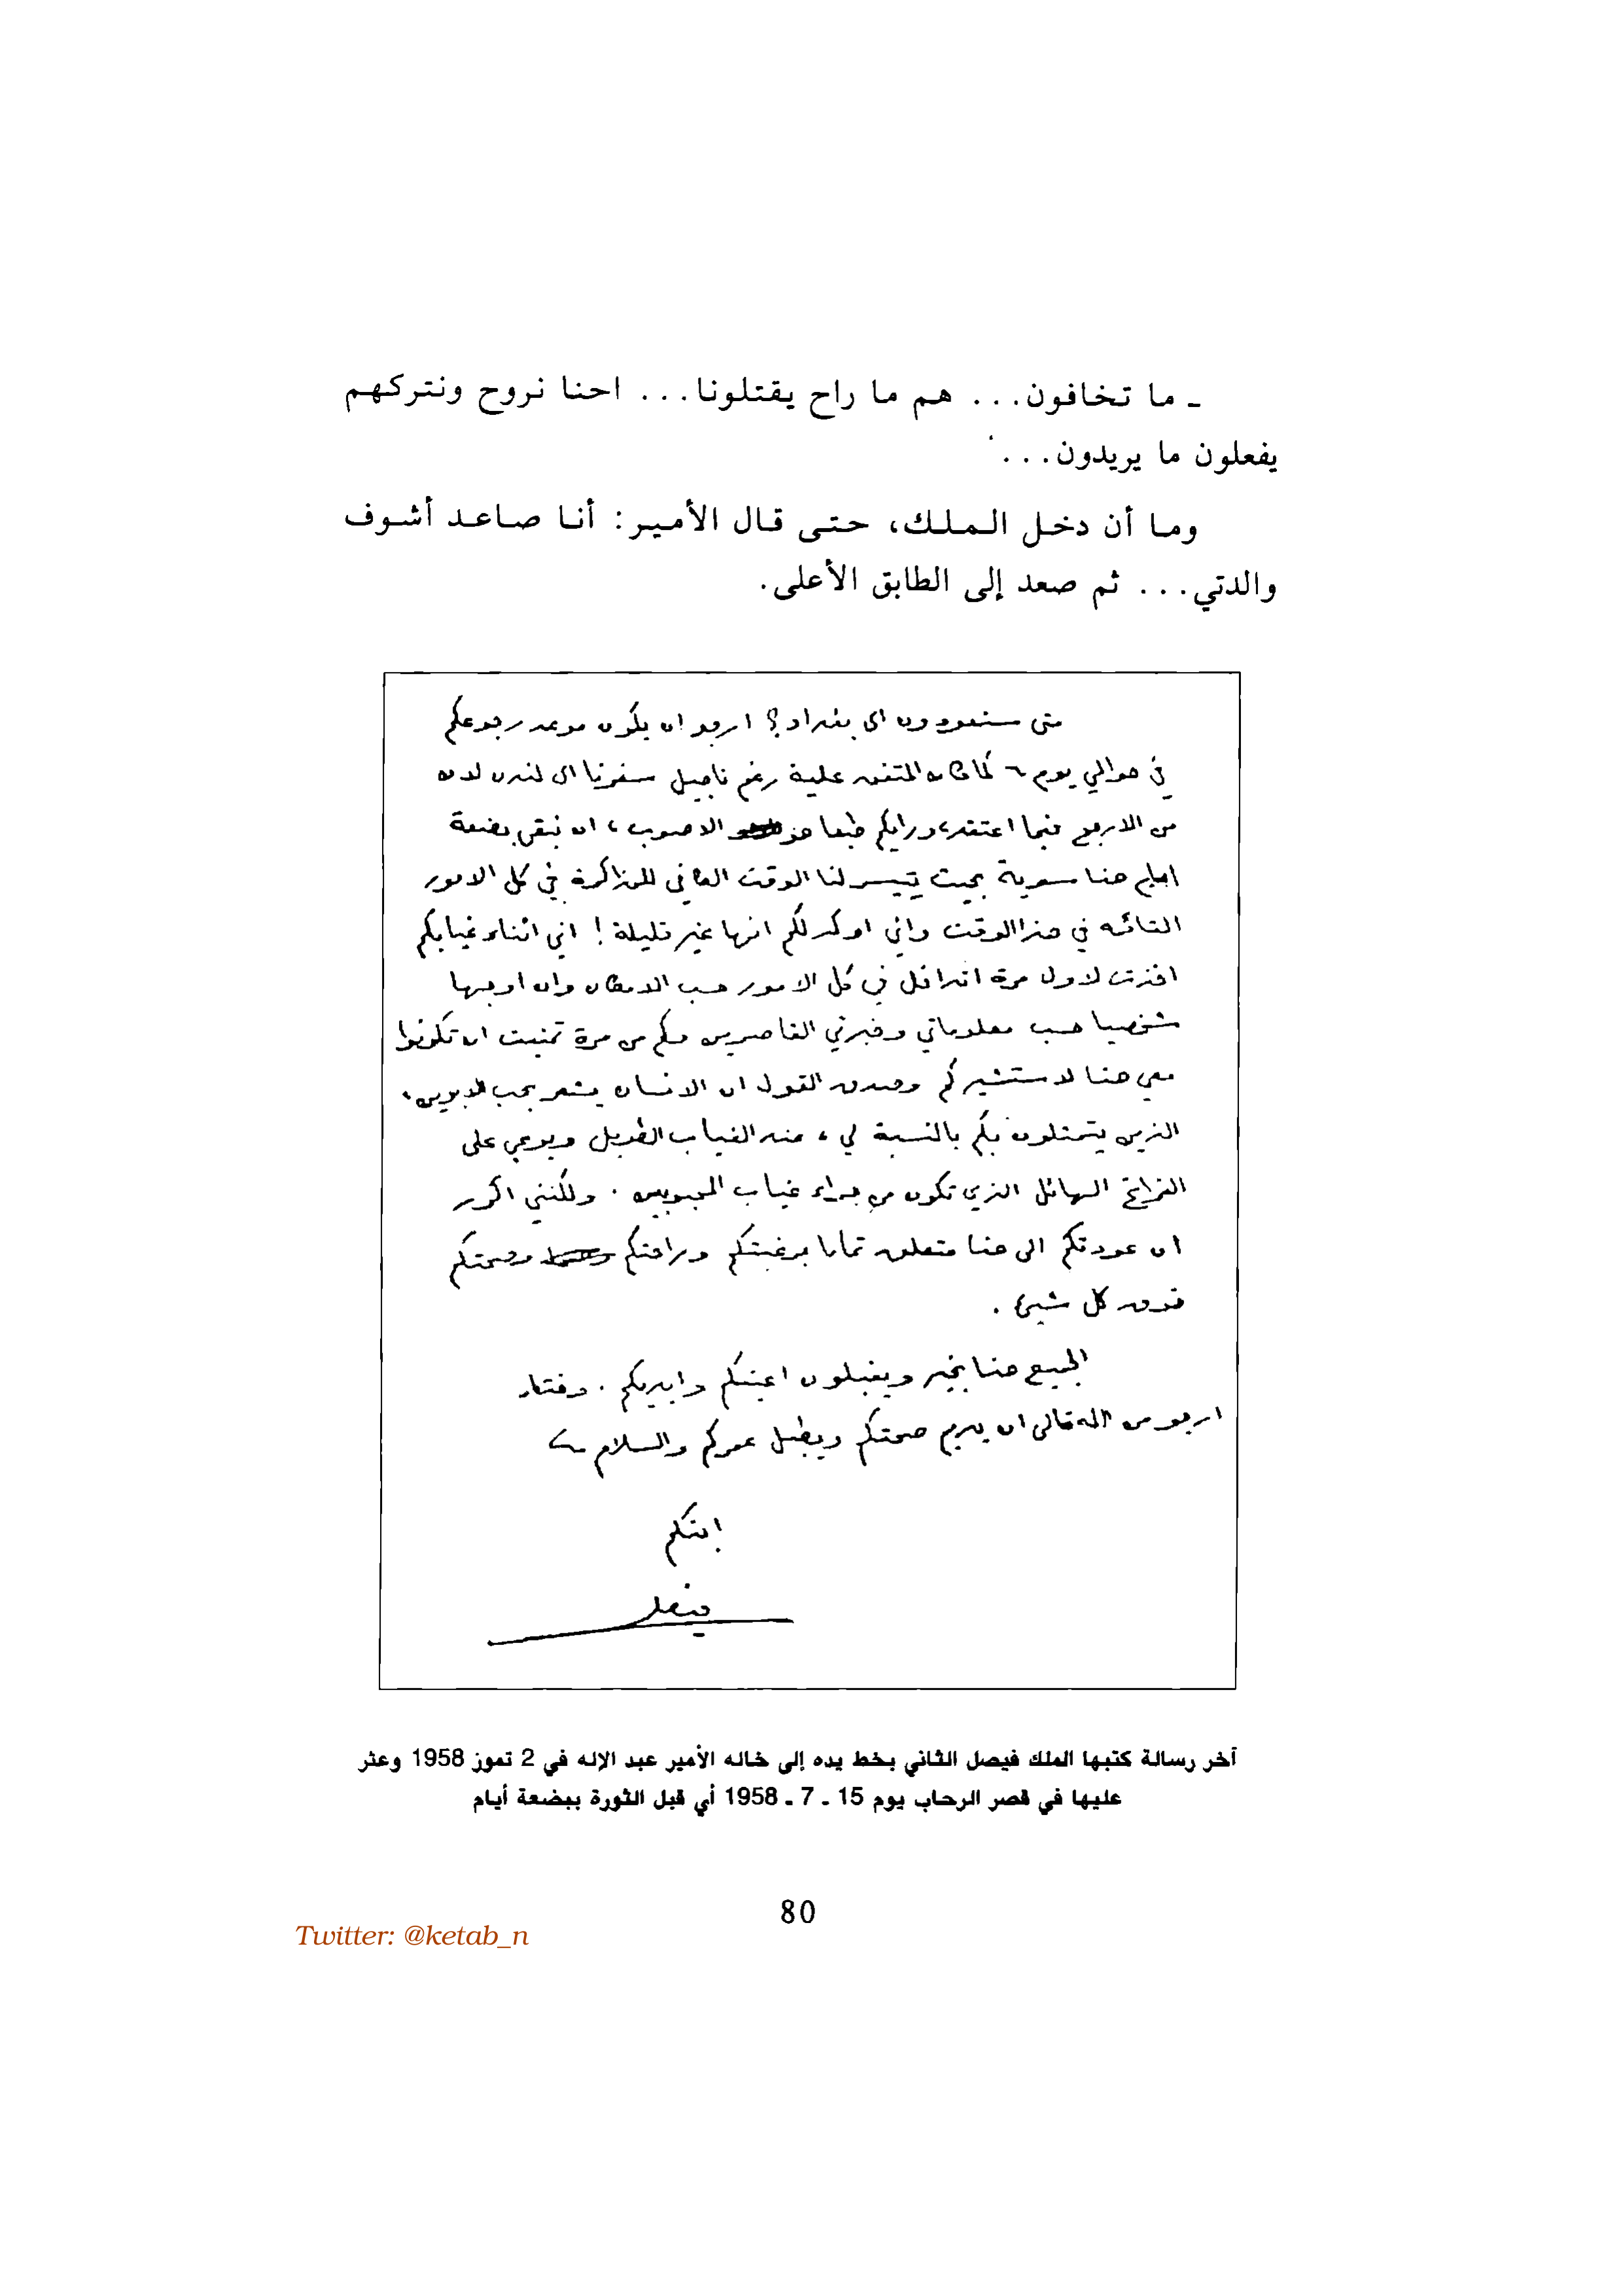 ـ ما تخافون... هم ما راح يقتلونا... احنا نروح ونتركهم
يفعلون ما يريدون...
وما أن دخل الملك، حتى قال الأمير: أنا صاعد أشوف
والدتي... ثم صعد إلى الطابق الأعلى.
متى ستعودون الى بغداد؟ ارجو ان يكون موعد رجوعكم
في حوالي يوم ٦ كما كان المتفق علية رغم تاجيل سفرنا الى لندن لان
من الاربح فيما اعتقد، ورايكم طبعا هو الاصوب، ان نبقى بضعة
ايام هنا سوية بحيث يتيسر لنا الوقت الكافي للمذاكرة في كل الامور
التائهه في هذا الوقت واني اوكد لكم انها غير قليلة! اني اثناء غيابكم
اخذت لاول مرة اتداخل في كل الامور حسب الامكان وان اوجهها
شخصيا حسب معلوماتي وخبرتي القاصرين وكم من مرة تمنيت ان تكونوا
معي هنا لاستشيركم وصدق القول ان الانسان يشعر بحب الابوين،
الذين يتمثلون بكم بالنسبة لي، عند الغياب الطويل ويوعي على
الفراغ الهائل الذي تكون من جراء غياب المحبوبين. ولكنني اكرر
ان عودتكم الى هنا متعلق تماما برغبتكم وراحتكم وصحتكم
فوق كل شيئ.
الجميع هنا بخير ويقبلون اعينكم وايديكم.
ارجو من الله تعالى ان يديم صحتكم ويطيل عمركم والسلام
ابنكم
فيصل
آخر رسالة كتبها الملك فيصل الثاني بخط يده إلى خاله الأمير عبد الإله في 2 تموز 1958 وعثر
عليها في قصر الرحاب يوم 15 ـ 7 ـ 1958 أي قبل الثورة ببضعة أيام
80
Twitter: @ketab_n